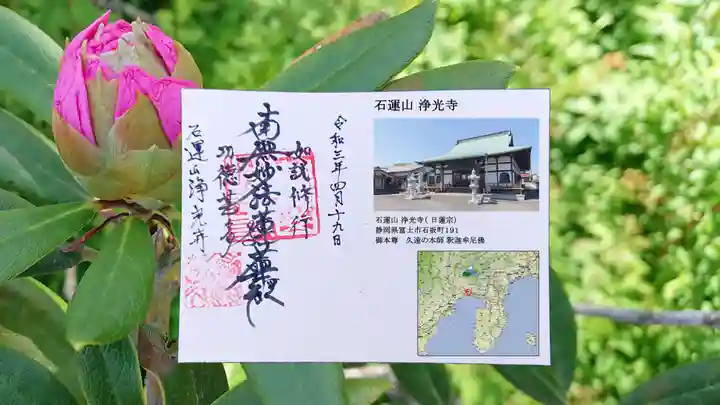 令和三年四月十九日
如説修行
南無妙法蓮華経
功徳甚多
石運山浄光寺
石運山 浄光寺
石運山 浄光寺(日蓮宗)
静岡県富士市石坂町191
御本尊 久遠の本師 釈迦牟尼佛